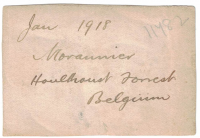 Jan 1918
11482
Moraunier
Houlhoust Forrest
Belgium